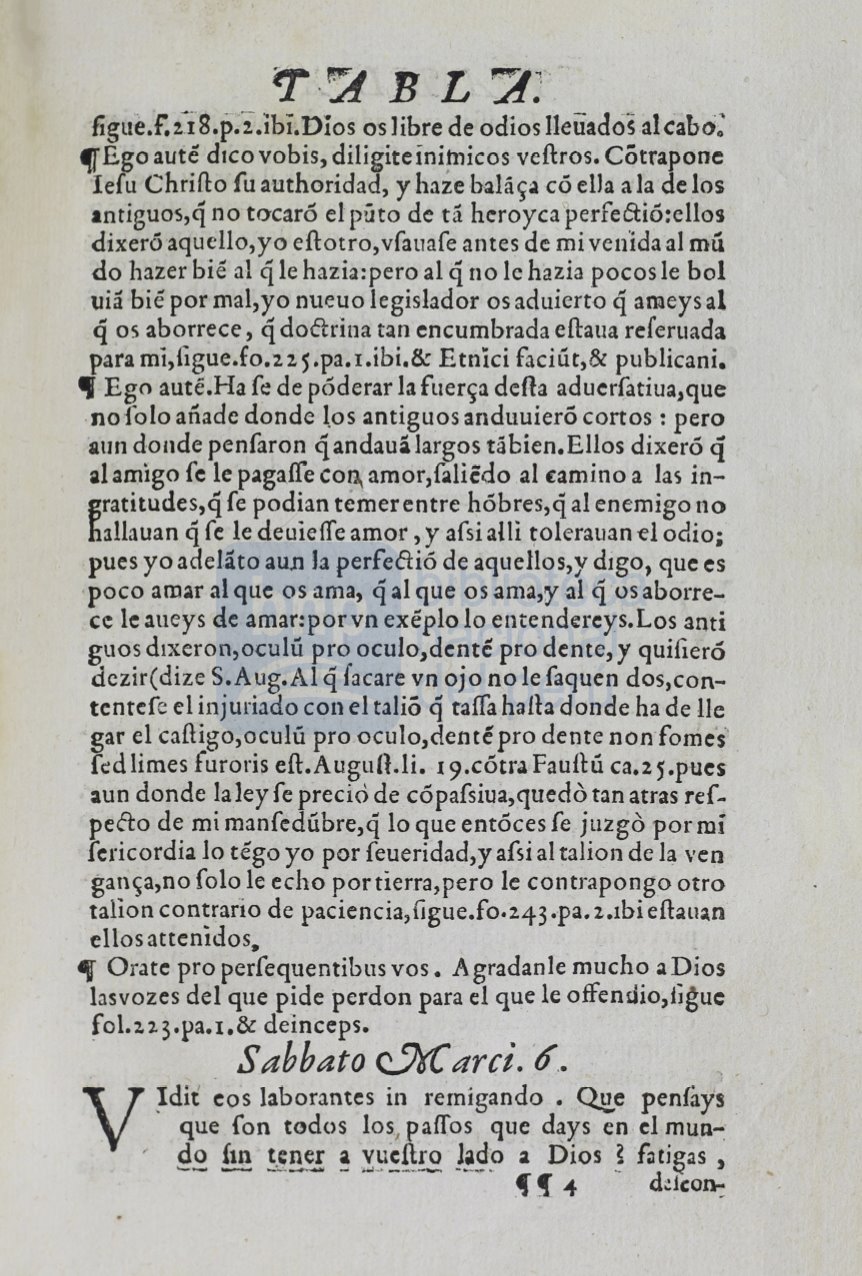 TABLA.
ſigue.f.218.p.2.ibi.Dios os libre de odios lleuados al cabo.
¶ Ego autẽ dico vobis, diligite inimicos veſtros. Cõtrapone
Ieſu Chriſto ſu authoridad, y haze balãça cõ ella a la de los
antiguos,q̃ no tocarõ el pũto de tã heroyca perfectiõ:ellos
dixerõ aquello,yo eſtotro,vſauaſe antes de mi venida al mũ
do hazer biẽ al q̃ le hazia:pero al q̃ no le hazia pocos le bol
uiã biẽ por mal,yo nueuo legislador os aduierto q̃ ameys al
q̃ os aborrece, q̃ doctrina tan encumbrada eſtaua reſeruada
para mi,ſigue.fo.225.pa.1.ibi.& Etnici faciũt,& publicani.
¶ Ego autẽ.Ha ſe de põderar la fuerça deſta aduerſatiua,que
no ſolo añade donde los antiguos anduuierõ cortos : pero
aun donde penſaron q̃ andauã largos tãbien.Ellos dixerõ q̃
al amigo ſe le pagaſſe con amor,ſaliẽdo al camino a las in-
gratitudes,q̃ ſe podian temer entre hõbres,q̃ al enemigo no
hallauan q̃ ſe le deuieſſe amor, y aſsi alli tolerauan el odio;
pues yo adelãto aun la perfectiõ de aquellos,y digo, que es
poco amar al que os ama, q̃ al que os ama,y al q̃ os aborre-
ce le aueys de amar:por vn exẽplo lo entendereys.Los anti
guos dixeron,oculũ pro oculo,dentẽ pro dente, y quiſierõ
dezir(dize S.Aug.Al q̃ ſacare vn ojo no le ſaquen dos,con-
tenteſe el injuriado con el taliõ q̃ taſſa haſta donde ha de lle
gar el caſtigo,oculũ pro oculo,dentẽ pro dente non fomes
ſed limes furoris eſt.Auguſt.li. 19.cõtra Fauſtũ ca.25.pues
aun donde la ley ſe preciò de cõpaſsiua,quedò tan atras reſ-
pecto de mi manſedũbre,q̃ lo que entõces ſe juzgò por mi
ſericordia lo tẽgo yo por ſeueridad,y aſsi al talion de la ven
gança,no ſolo le echo por tierra,pero le contrapongo otro
talion contrario de paciencia,ſigue.fo.243.pa.2.ibi eſtauan
ellos attenidos.
¶ Orate pro perſequentibus vos. Agradanle mucho a Dios
las vozes del que pide perdon para el que le offendio,ſigue
fol.223.pa.1.& deinceps.
Sabbato Marci. 6.
VIdit eos laborantes in remigando . Que penſays
que ſon todos los paſſos que days en el mun-
do ſin tener a vueſtro lado a Dios ? fatigas ,
¶¶ 4 deſcon-